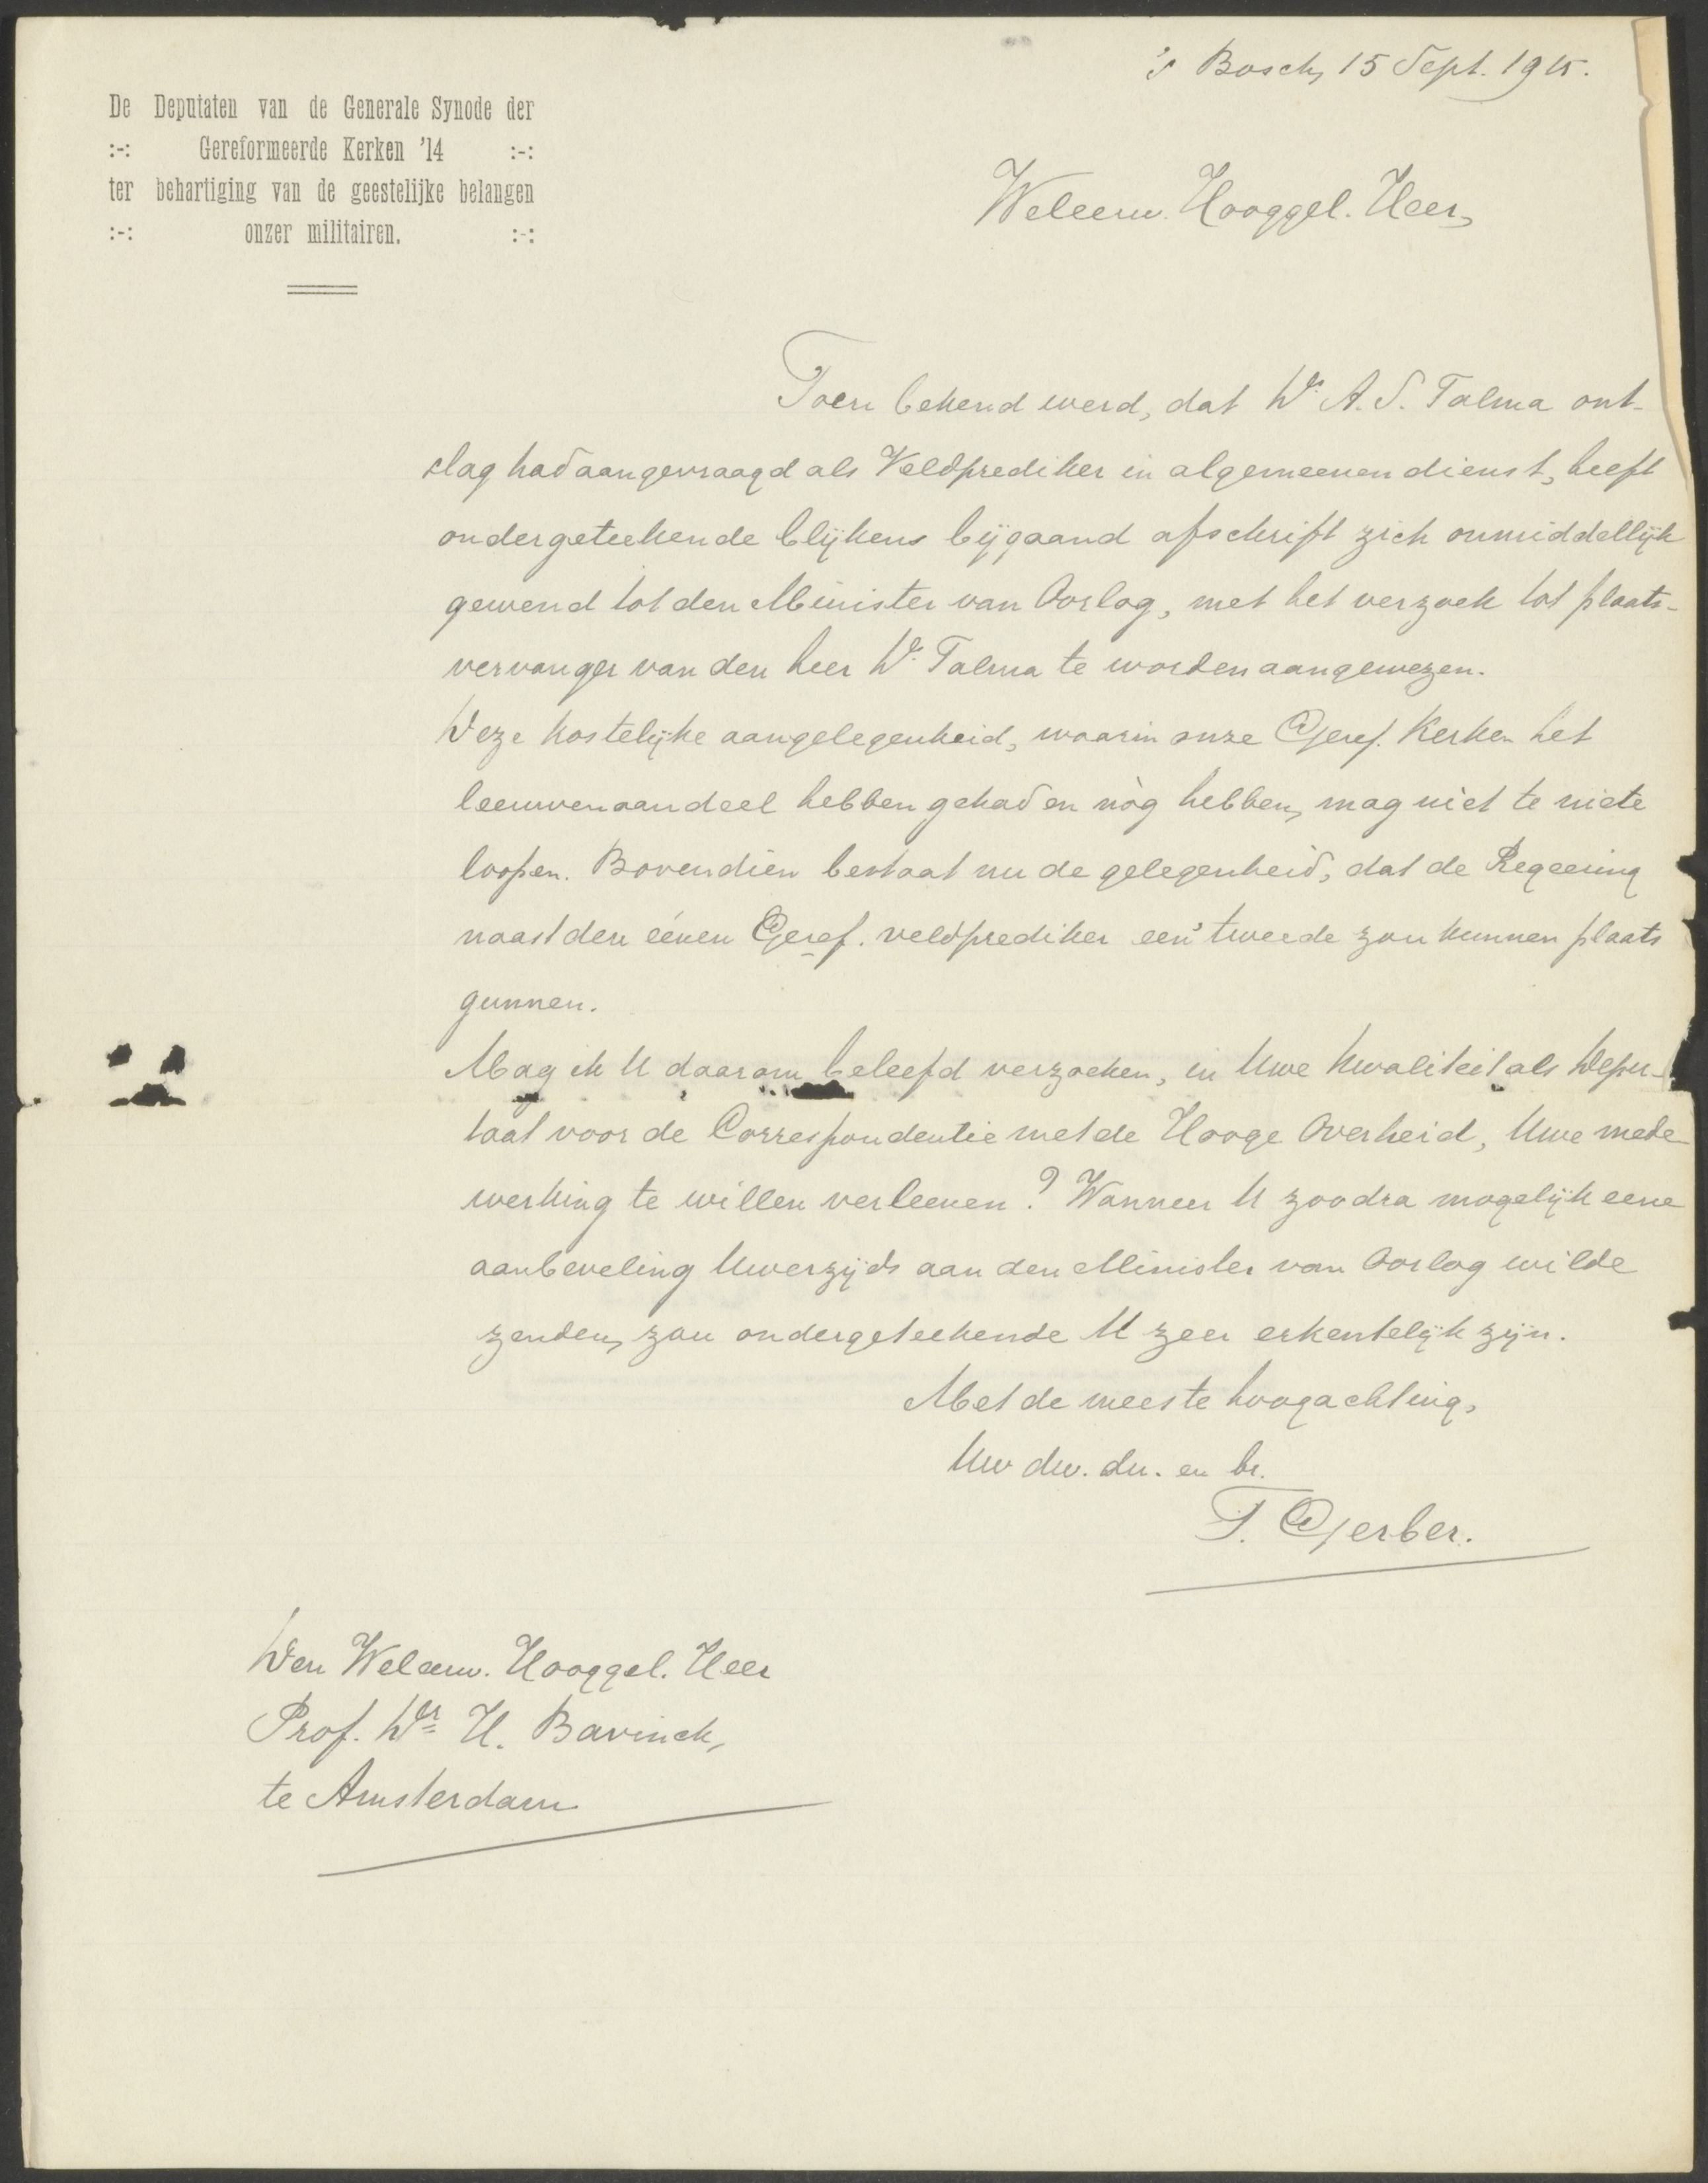 's Bosch, 15 Sept. 1915.
De Deputaten van de Generale Synode der
:-: Gereformeerde Kerken '14 :-:
ter behartiging van de geestelijke belangen
:-: onzer militairen. :-:
Weleerw. Hooggel. Heer,
Toen bekend werd, dat Ds. A. S. Talma ont-
slag had aangevraagd als Veldprediker in algemeenen dienst, heeft
ondergeteekende blijkens bijgaand afschrift zich onmiddellijk
gewend tot den Minister van Oorlog, met het verzoek tot plaats-
vervanger van den heer Ds. Talma te worden aangewezen.
Deze kostelijke aangelegenheid, waarin onze Geref. Kerken het
leeuwenaandeel hebben gehad en nòg hebben, mag niet te niete
loopen. Bovendien bestaat nu de gelegenheid, dat de Regeering
naast den éénen Geref. veldprediker een tweede zou kunnen plaats
gunnen.
Mag ik U daarom beleefd verzoeken, in Uwe kwaliteit als Depu-
taat voor de Correspondentie met de Hooge Overheid, Uwe mede
werking te willen verleenen? Wanneer U zoodra mogelijk eene
aanbeveling Uwerzijds aan den Minister van Oorlog wilde
zenden, zou ondergeteekende U zeer erkentelijk zijn.
Met de meeste hoogachting,
Uw dw. dn. en br.
T. Gerber.
Den Weleerw. Hooggel. Heer
Prof. Dr. H. Bavinck,
te Amsterdam